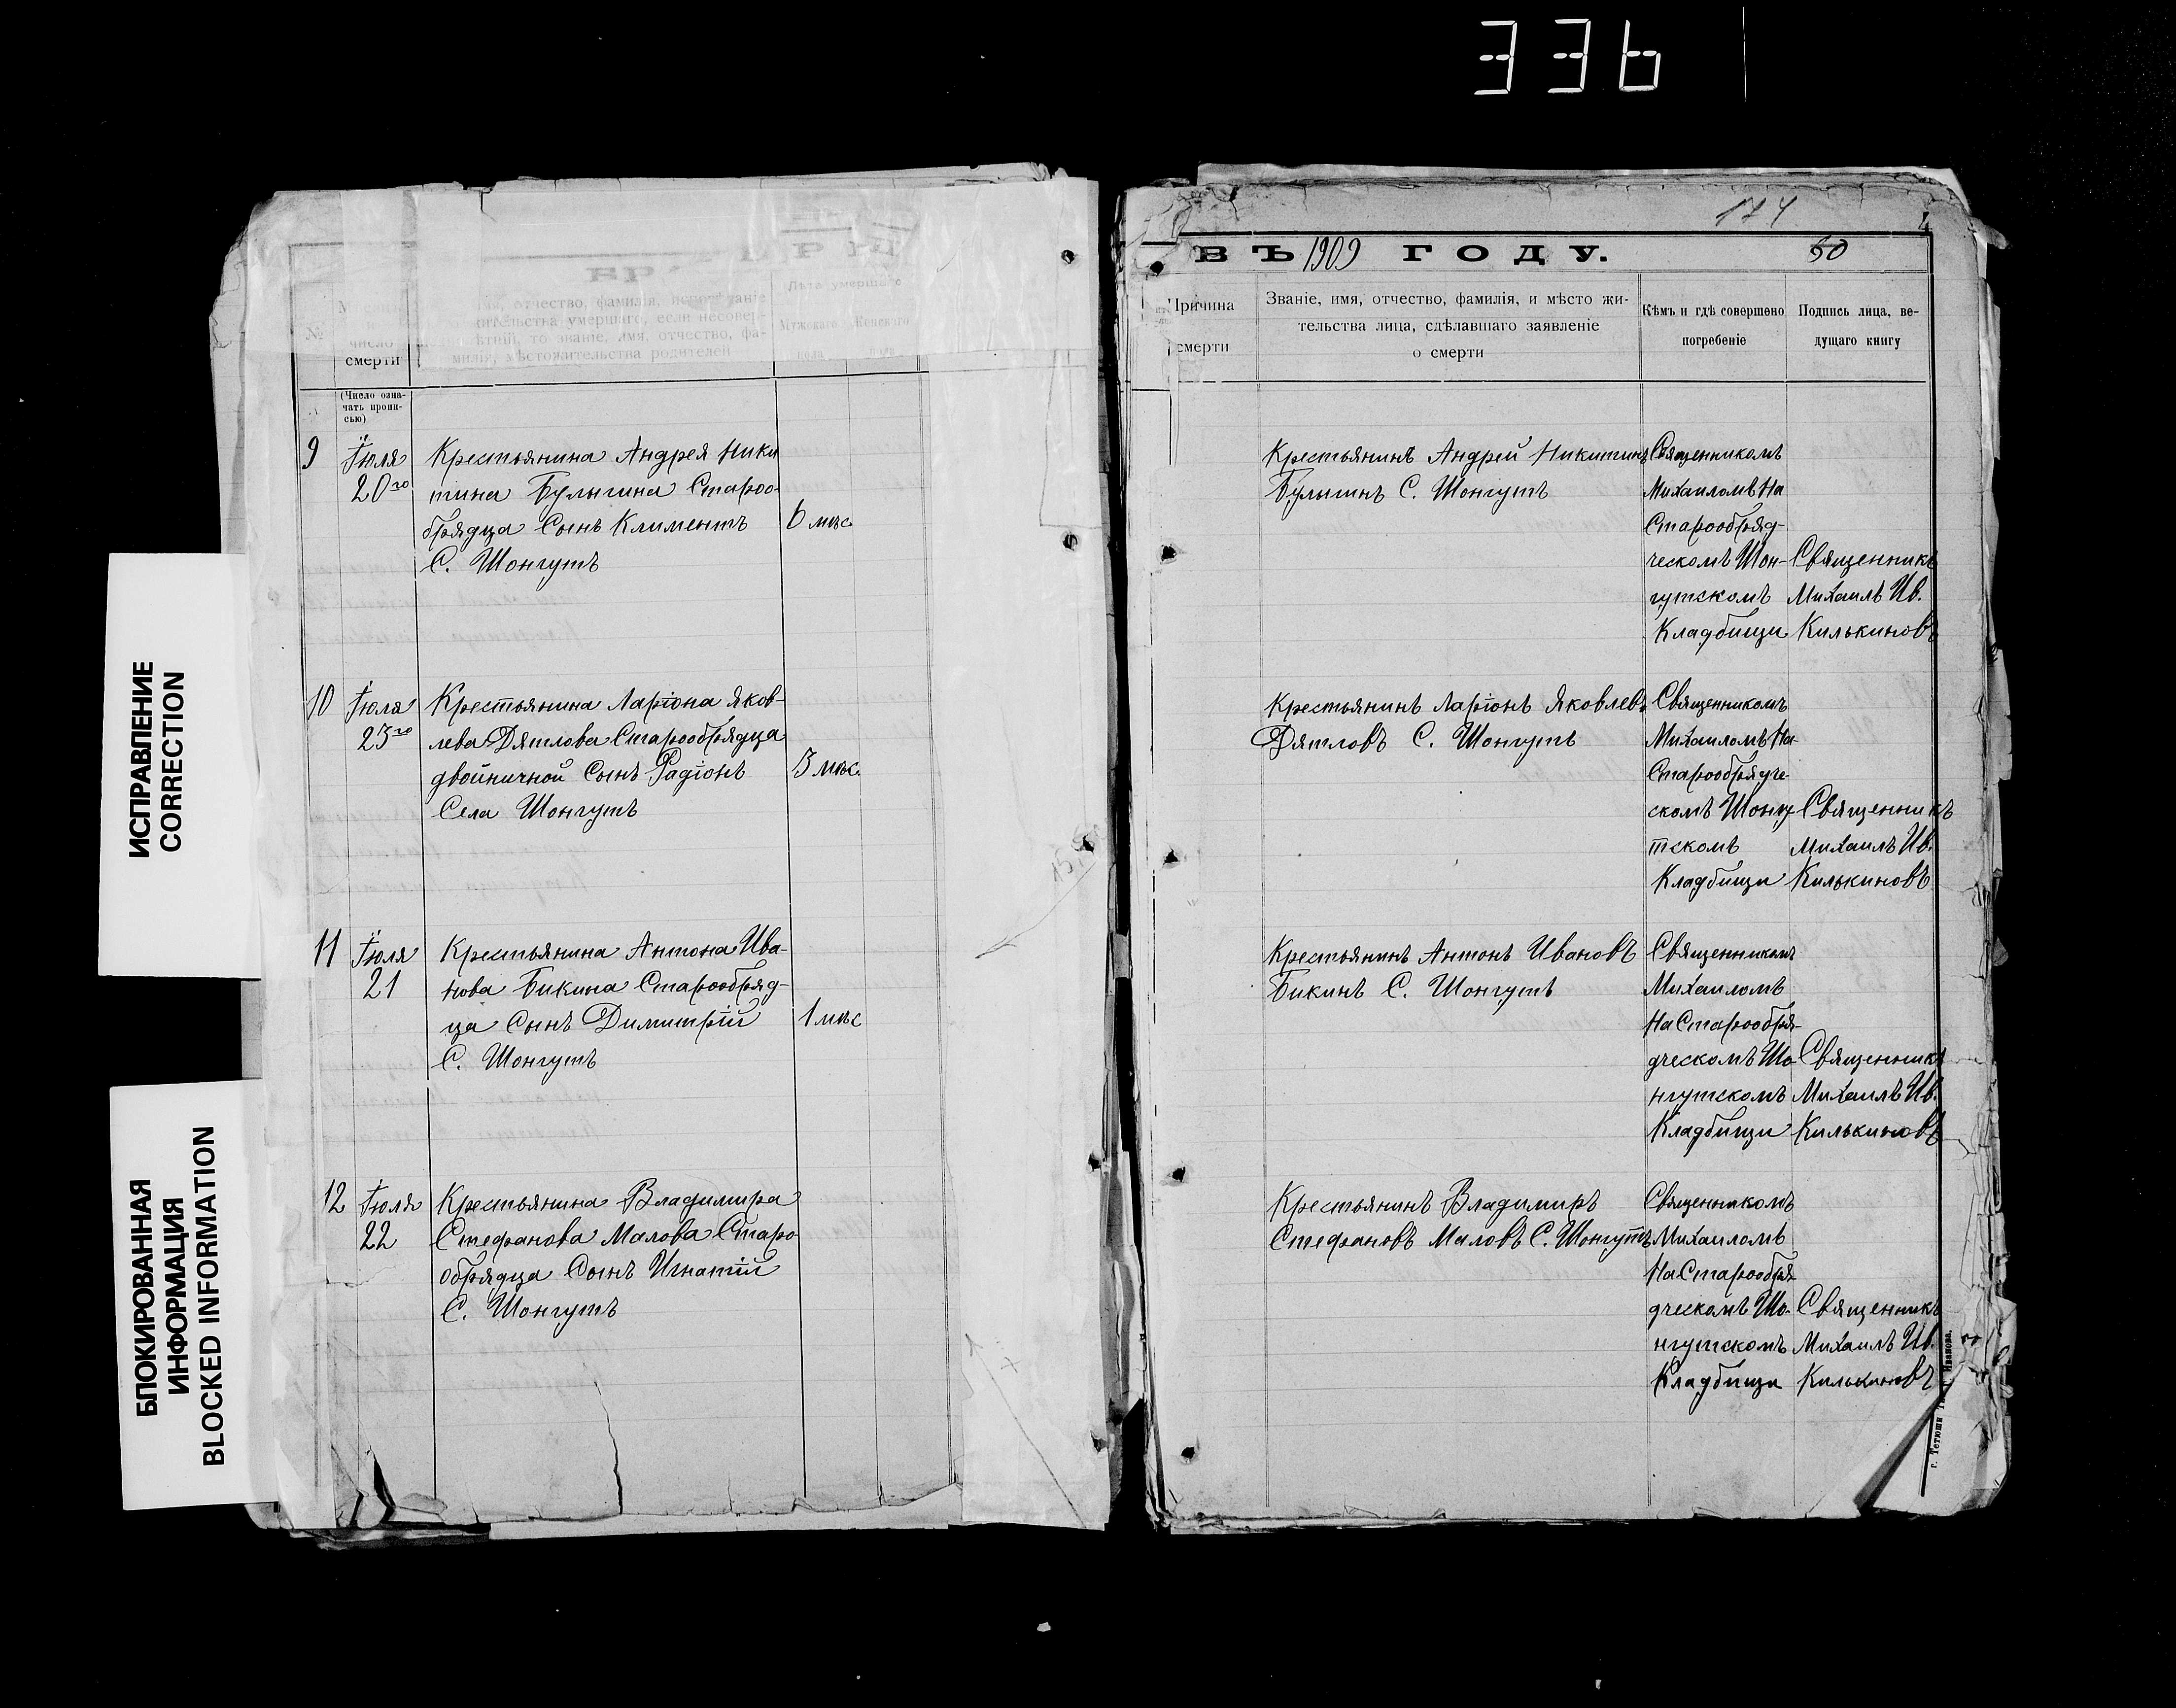 336
ИСПРАВЛЕНИЕ
CORRECTION
БЛОКИРОВАННАЯ
ИНФОРМАЦИЯ
BLOCKED INFORMATION
№
число
смерти
отчество, фамилія,
тельства умершаго, если несовер-
то званіе, имя, отчество, фа-
милія, мѣстожительства родителей
Лѣта умершаго
Мужского
Женского
пола
пола
(Число озна-
чать пропи-
сью)
9
Іюля
20го
Крестьянина Андрея Ники
тина Булыгина Староо-
брядца Сынъ Климентъ
С. Шонгутъ
6 мѣс.
10
Іюля
23го
Крестьянина Ларіона Яков-
лева Дятлова Старообрядца
двойничной Сынъ Радіонъ
Села Шонгутъ
3 мѣс.
11
Іюля
21
Крестьянина Антона Ива-
нова Бикина Старообряд-
ца Сынъ Димитрій
С. Шонгутъ
1 мѣс
12
Іюля
22
Крестьянина Владимира
Стефанова Малова Старо
обрядца Сынъ Игнатій
С. Шонгутъ
174
4
ВЪ 1909 ГОДУ.
50
Причина
смерти
Званіе, имя, отчество, фамилія, и мѣсто жи-
тельства лица, сдѣлавшаго заявленіе
о смерти
Кѣмъ и гдѣ совершено
погребеніе
Подпись лица, ве-
дущаго книгу
Крестьянинъ Андрей Никитинъ
Булыгинъ С. Шонгутъ
Священникомъ
Михаиломъ На
Старообряд-
ческомъ Шон-
гутскомъ
Кладбищи
Священникъ
Михаилъ Ив.
Килькиновъ
Крестьянинъ Ларіонъ Яковлевъ
Дятловъ С. Шонгутъ
Священникомъ
Михаиломъ На-
Старообрядче-
скомъ Шонгу-
тскомъ
Кладбищи
Священникъ
Михаилъ Ив.
Килькиновъ
Крестьянинъ Антонъ Ивановъ
Бикинъ С. Шонгутъ
Священникомъ
Михаиломъ
На Старообря-
дческомъ Шо-
нгутскомъ
Кладбищи
Священникъ
Михаилъ Ив.
Килькиновъ
Крестьянинъ Владимиръ
Стефановъ Маловъ С. Шонгутъ
Священникомъ
Михаиломъ
На Старообря
дческомъ Шо-
нгутскомъ
Кладбищи
Священникъ
Михаилъ Ив.
Килькиновъ
г. Тетюши Иванова.